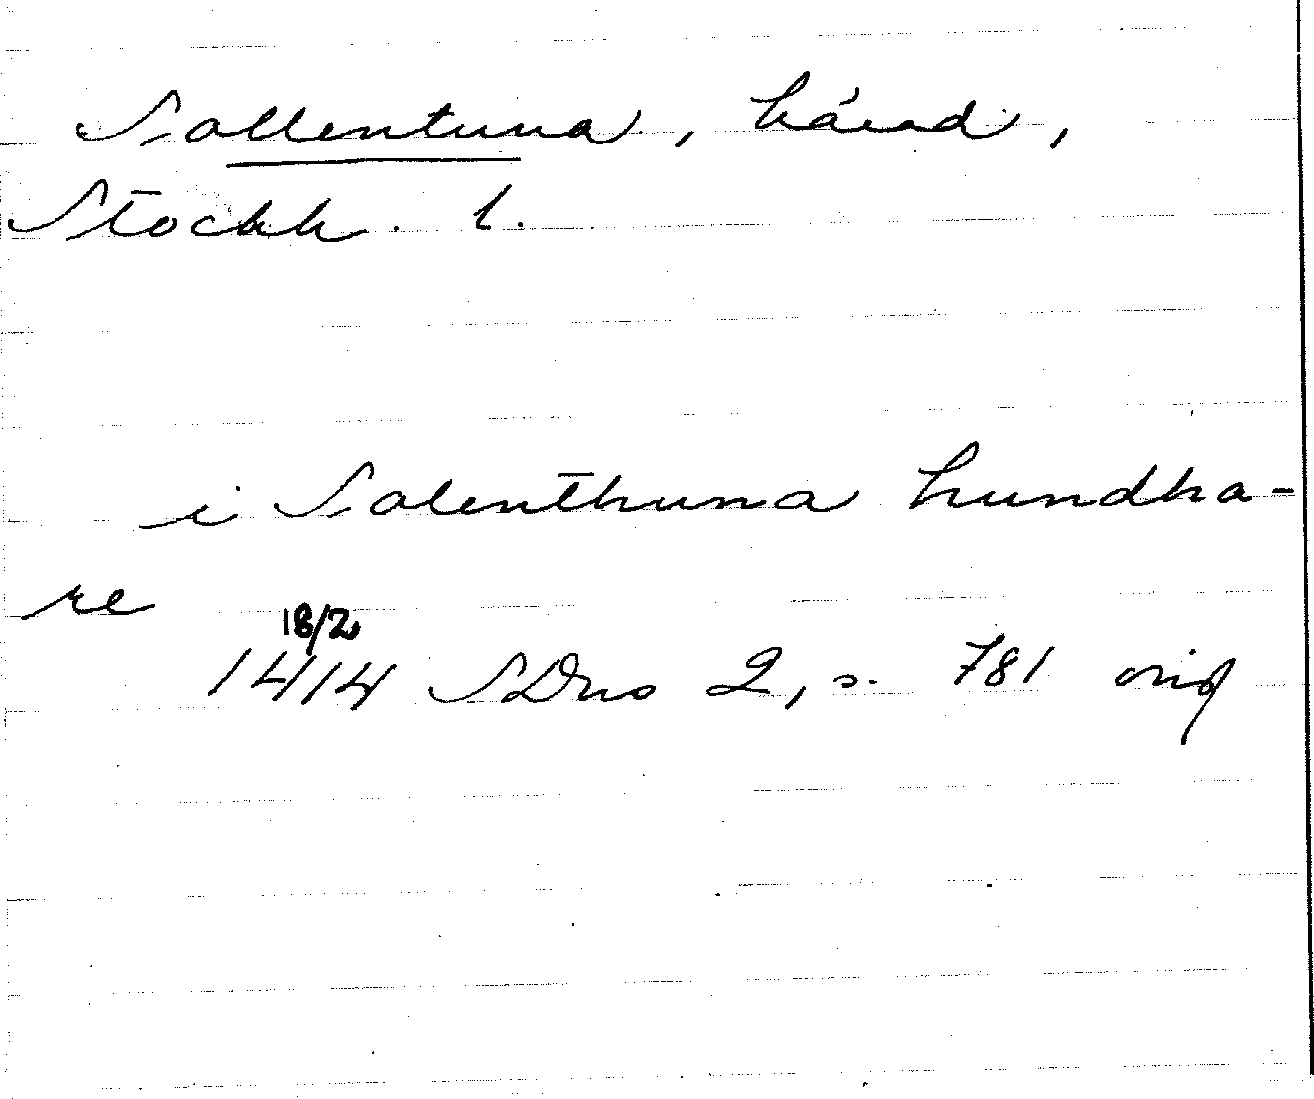 Sollentuna, härad,
Stockh. l.
i Solenthuna hundha-
re
18/2
1414 SDns 2, s. 781 orig